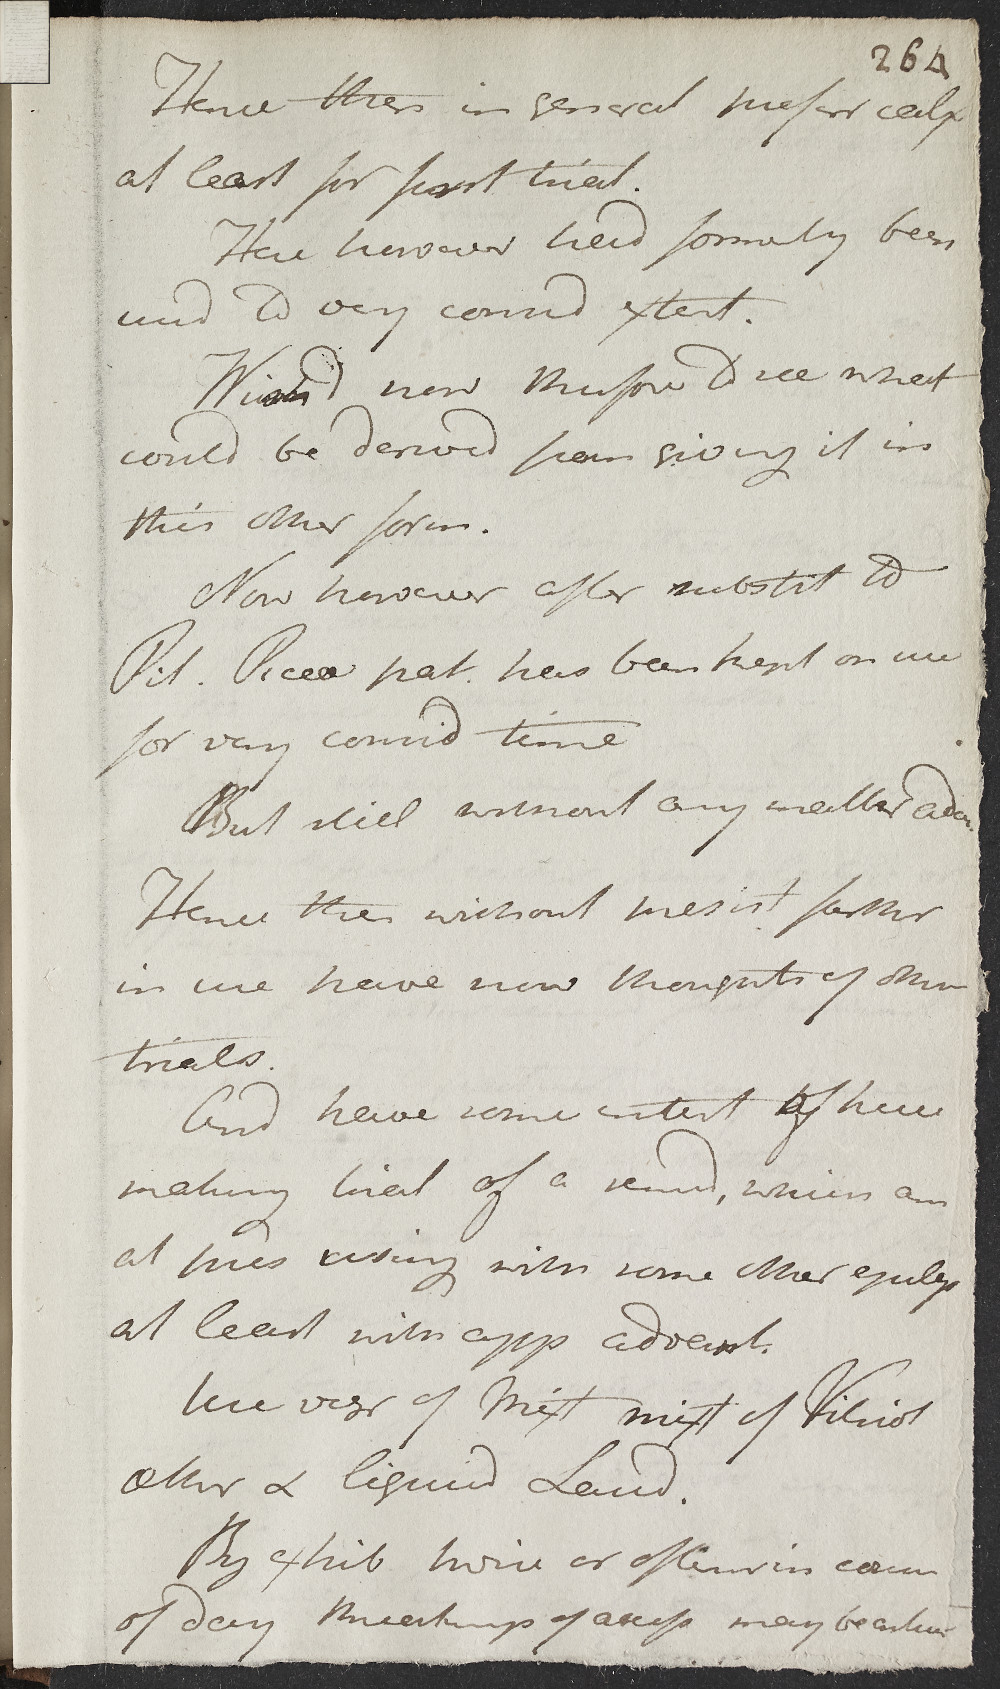 264
Hence then in general prefer calx
at least for first trial.
Here however had formerly been
used to very consid extent.
Wish'd now therefore to see what
could be derived from giving it in
this other form.
Now however after substit to
Pil. Picea pat. has been kept on use
for very consid time
But still without any matter advan.
Hence then without farther
in use have now thoughts of other
trials.
And have some intent of here
making trial of a remd, which am
at pres using with some other epilep
at least with app advant.
use of Mixt mixt of Vitriol
æther & liquid Laud.
By exhib twice or oftener in course
of day threatnings of access may be